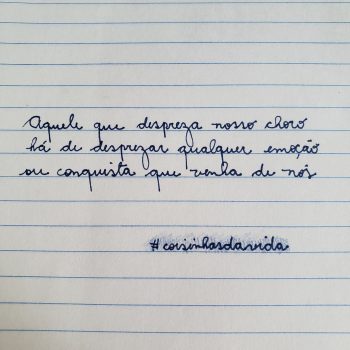 Aquele que despreza nosso choro
há de desprezar qualquer emoção
ou conquista que venha de nós
#coisinhasdavida